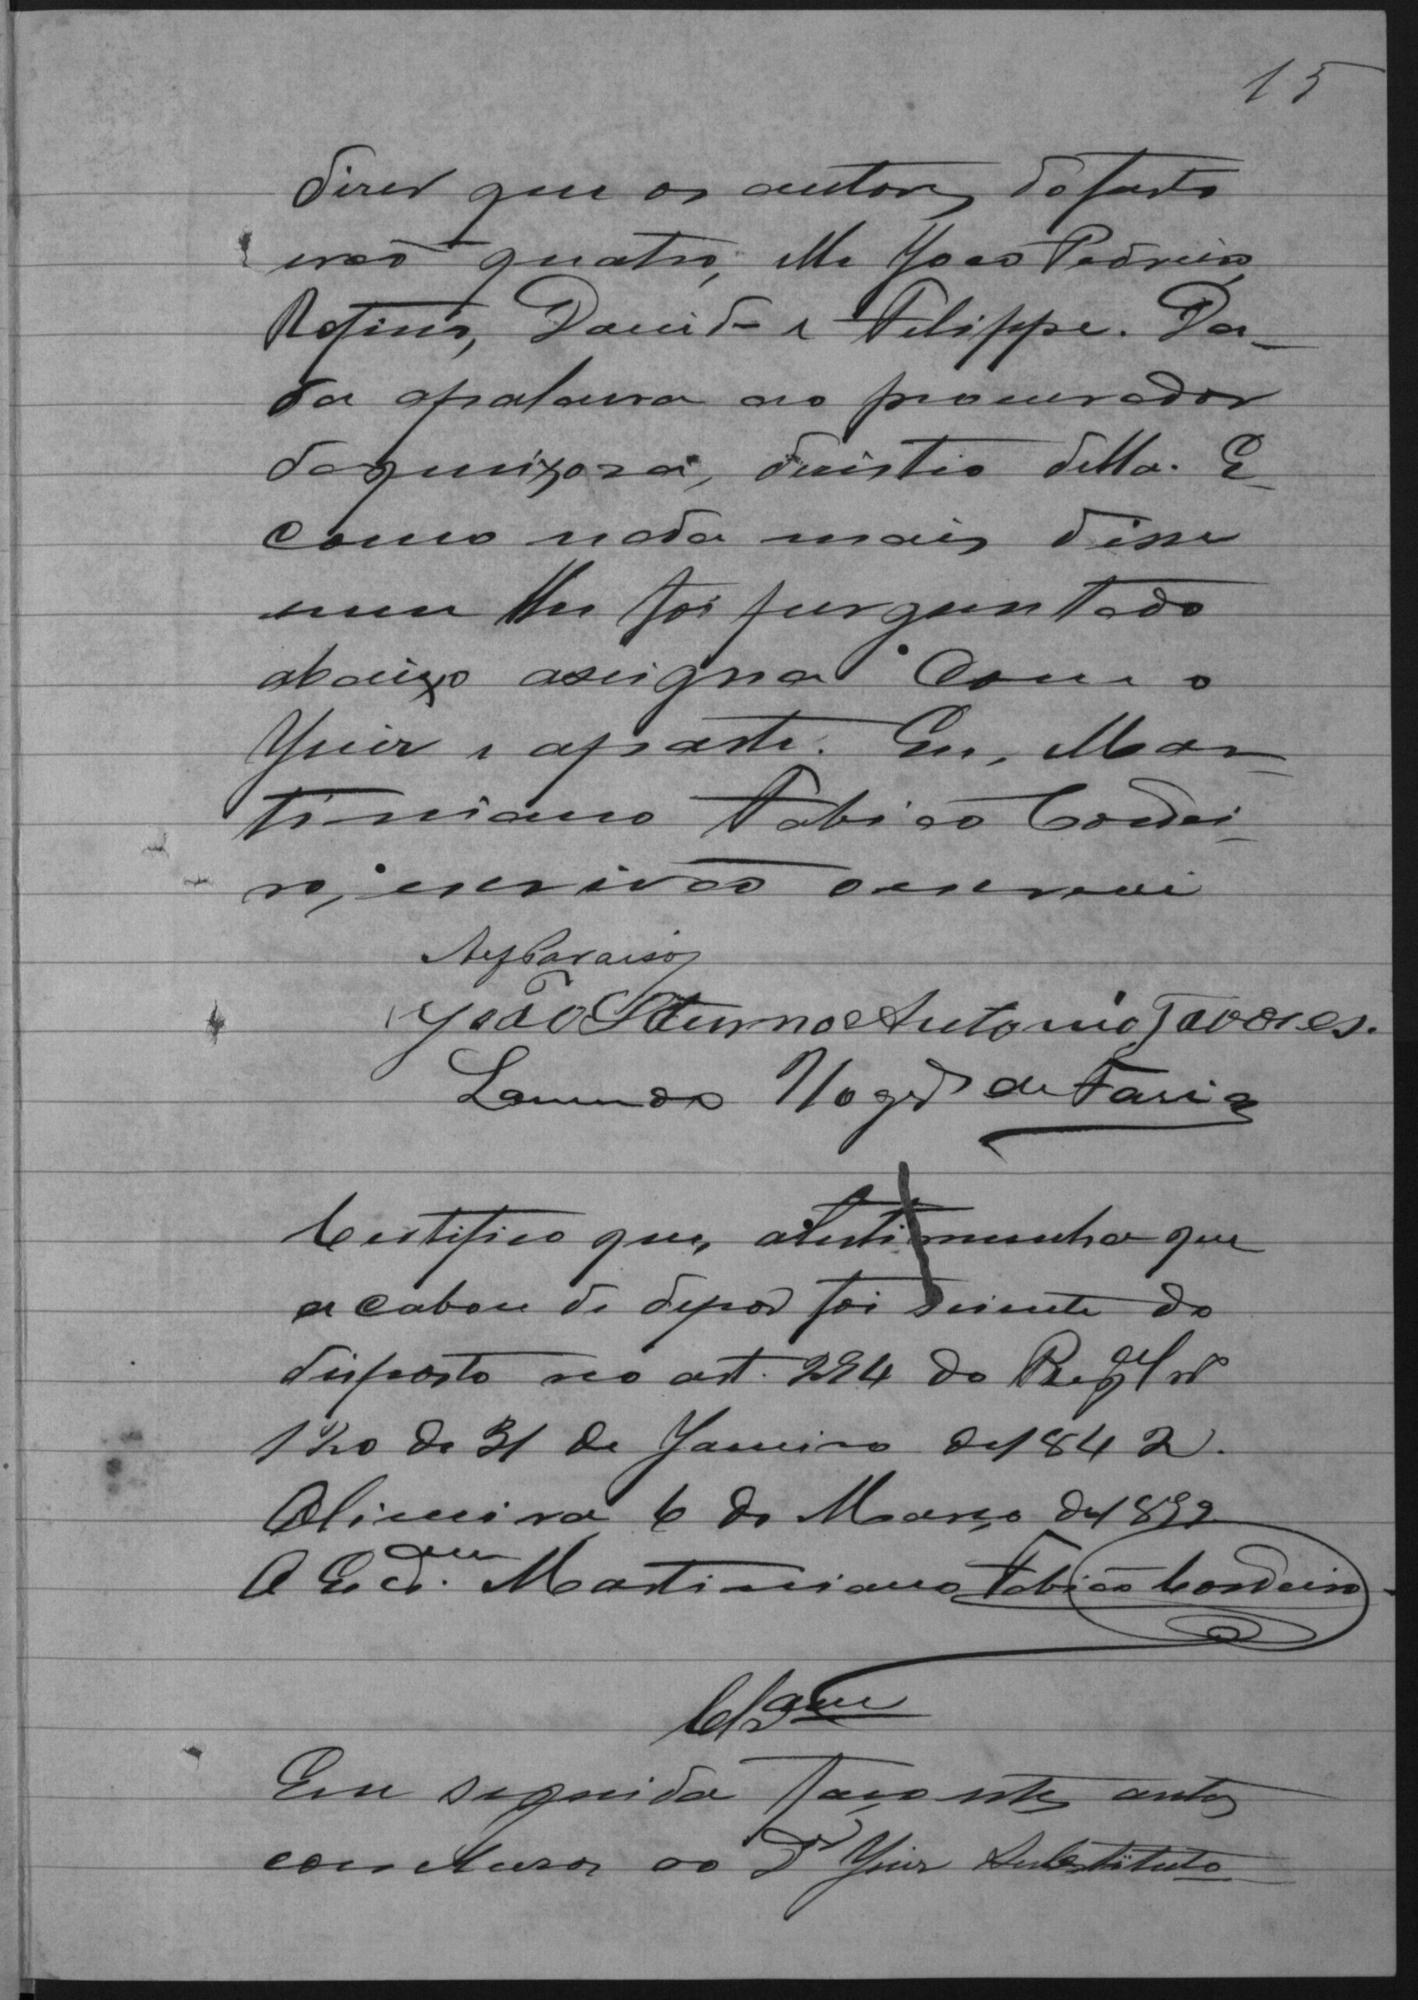 15
dizer que os autores do facto
erão quatro, Me João Pedreiro,
Rofino, David e Filippe. Da-
da apalavra ao procurador
daqueixosa, disistio della. E
como nada mais disse
nem lhe foi perguntado
abaixo assigna com o
Juiz e aparte. Eu, Mar-
tiniano Fabião Cordei-
ro, escrivão o escrevi
João Sturno Antonio Tavares.
de Faria
Certifico que, atestimunha que
acabou de depor foi sciente do
disposto no art. 294 do Regl nº
120 de 31 de Janeiro de 1842.
Limeira 6 de Março de 1892
O Martiniano Fabião Cordeiro
Clsam
Em seguida faço estes autos
conclusos ao Dr Juiz Substituto